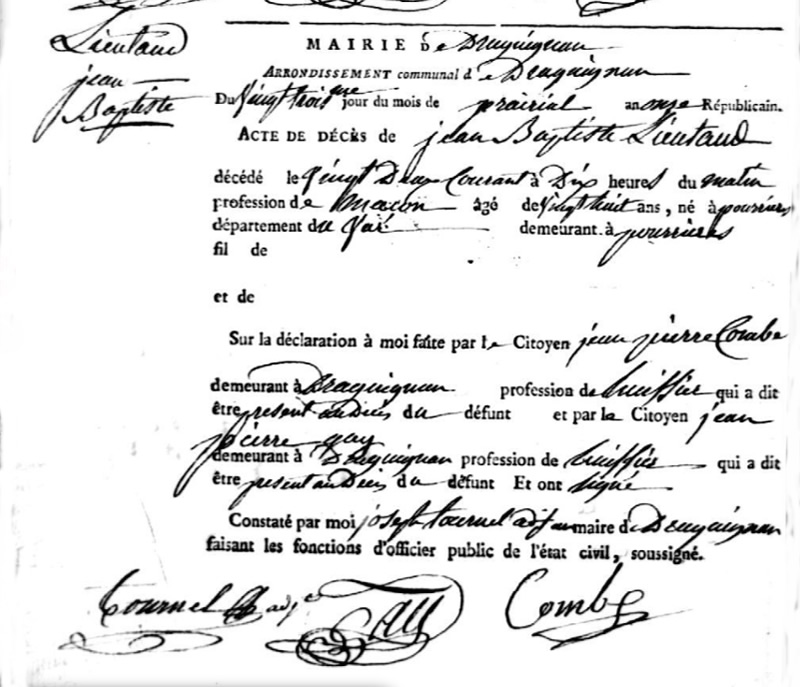 Lieutaud
jean
Baptiste
MAIRIE de Draguignan
ARRONDISSEMENT communal de Draguignan
Du Vingt trois me jour du mois de prairial an onze Républicain.
ACTE DE DÉCÈS de jean Baptiste Lieutaud
décédé le Vingt Deux Courant à Dix heures du matin
profession de Macon âgé de Vingt huit ans, né à pourriers
département du Var demeurant à pourrieres
fil de
et de
Sur la déclaration à moi faite par le Citoyen jean pierre Combe
demeurant à Draguignan profession de huissier qui a dit
être present au Déces du défunt et par le Citoyen jean
pierre gay
demeurant à Draguignan profession de huissier qui a dit
être present au Déces du défunt Et ont signé
Constaté par moi joseph tournel adj au maire de Draguignan
faisant les fonctions d'officier public de l'état civil, soussigné.
Tournel Gay Combe